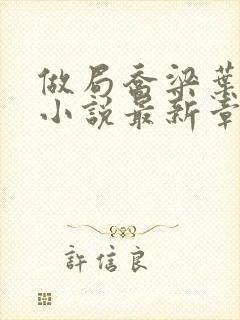 做局喬梁葉
小說最新章
許信良